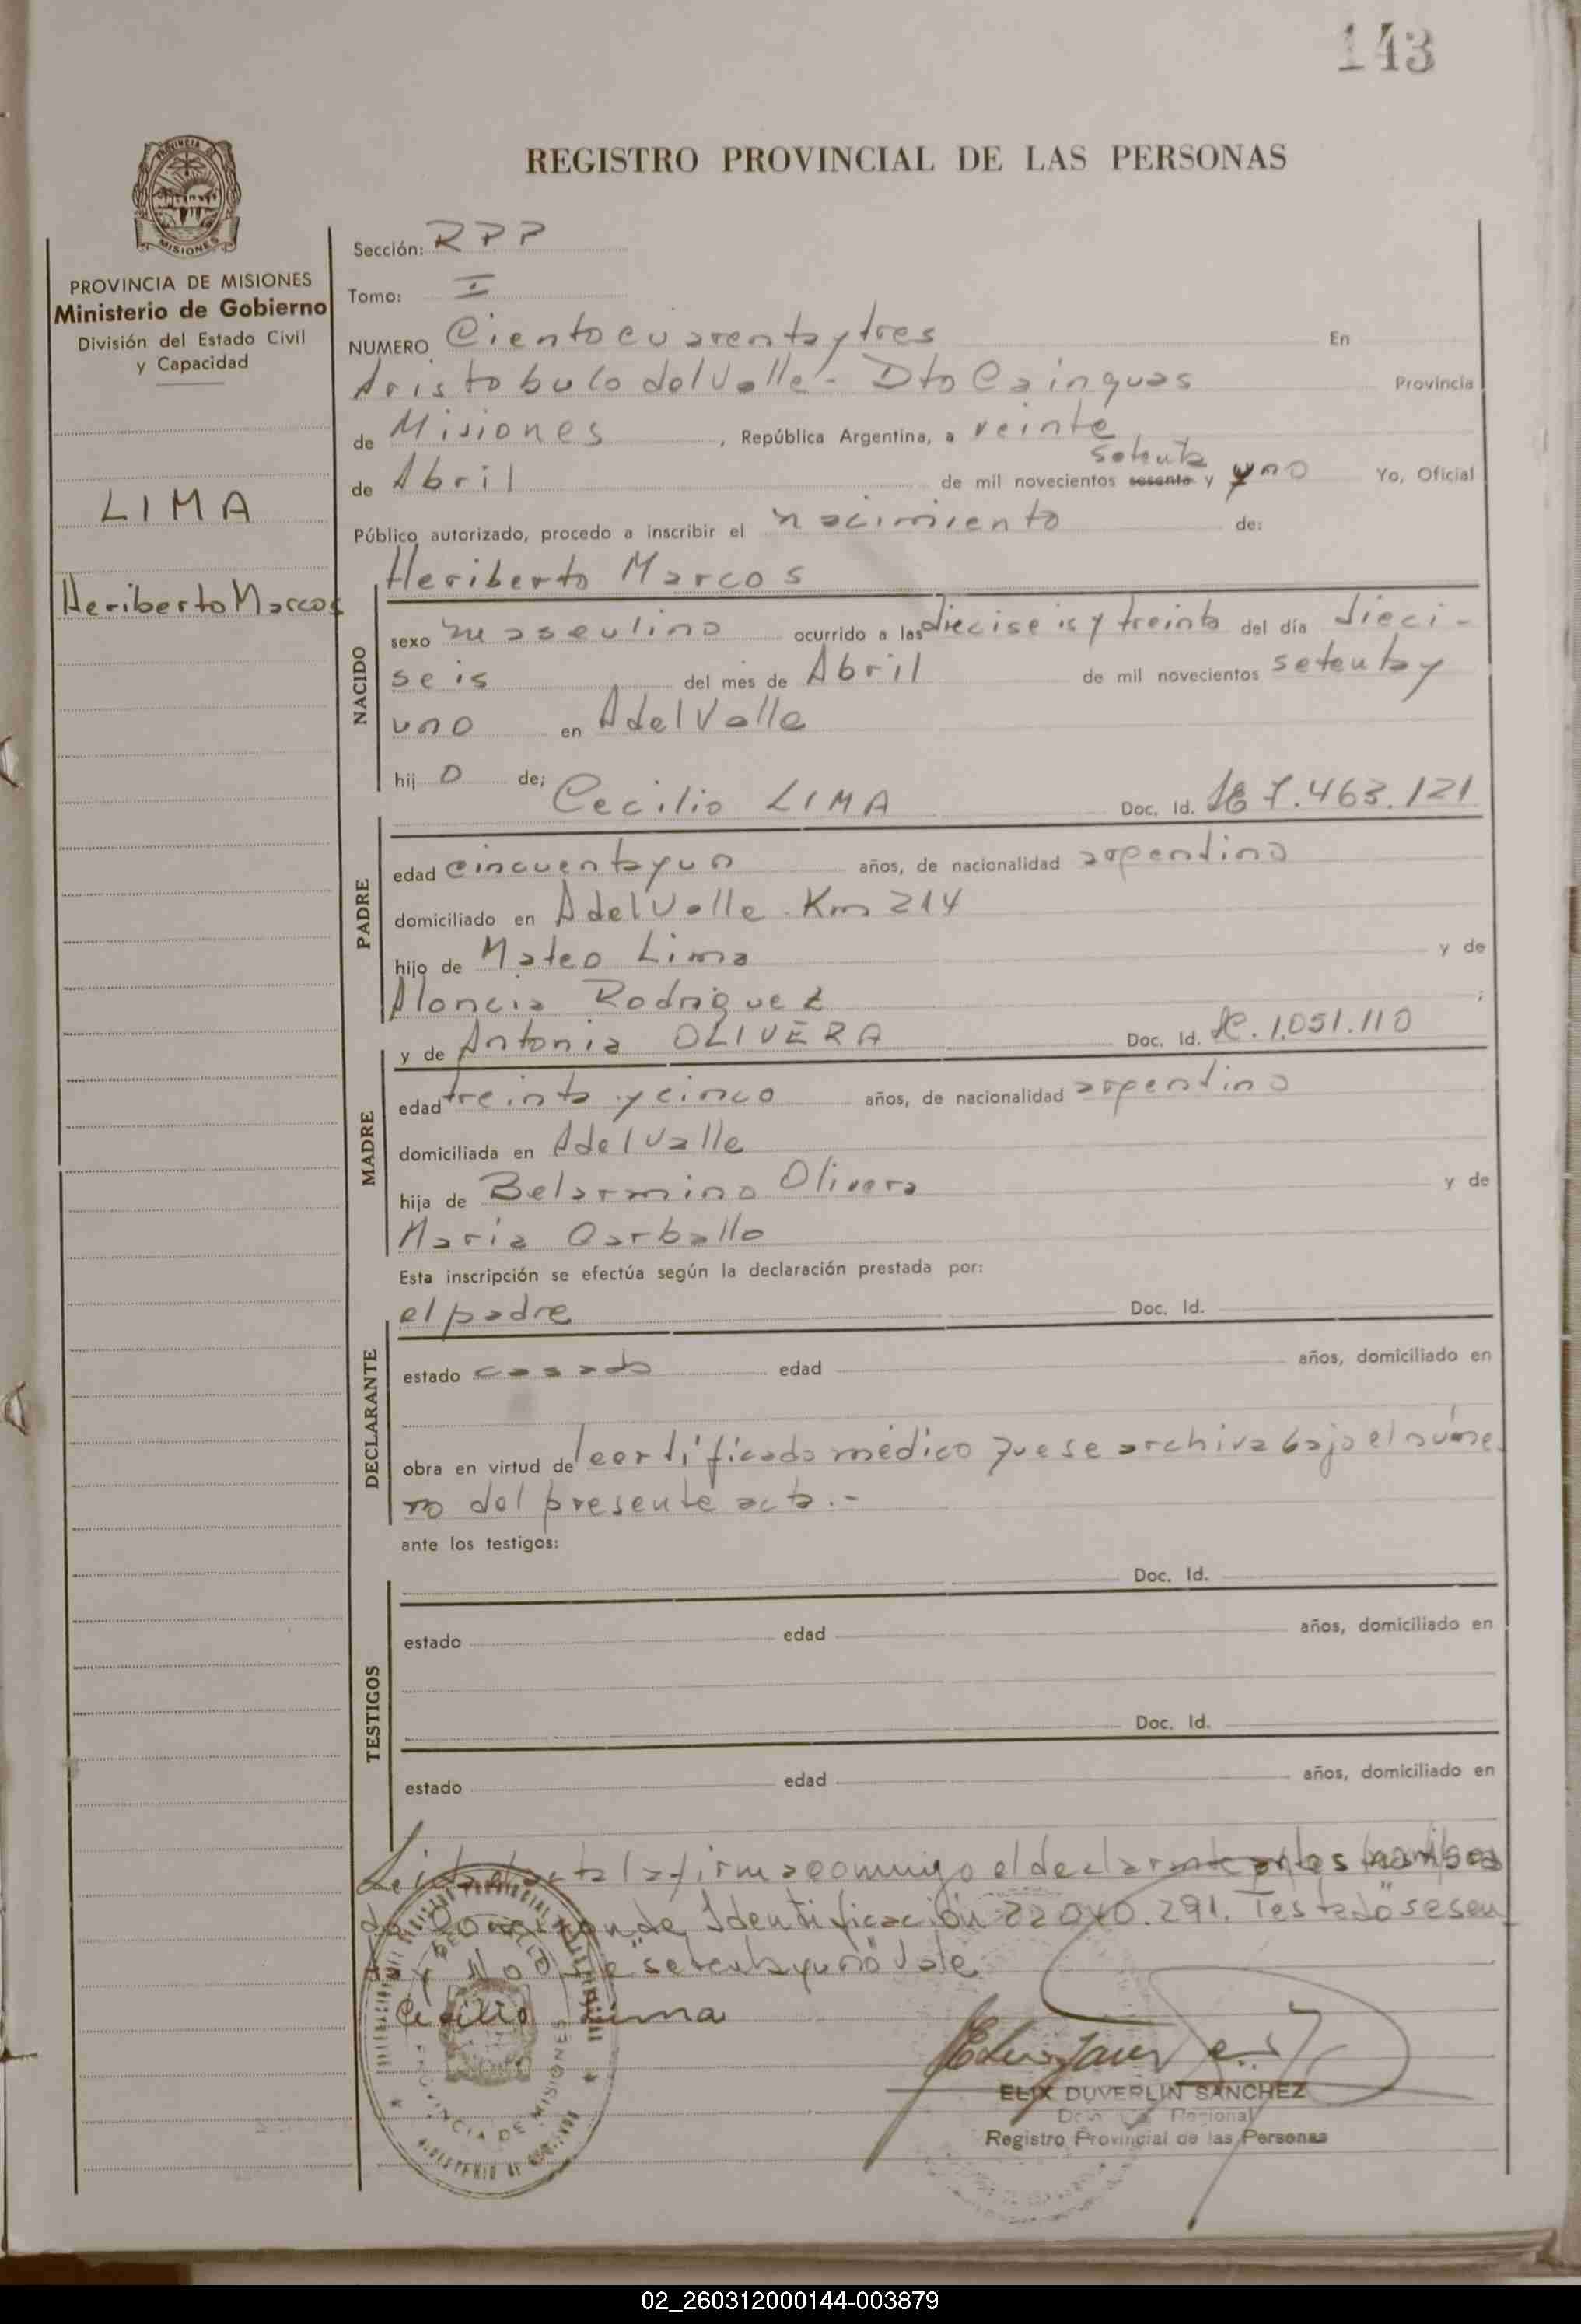 143
REGISTRO PROVINCIAL DE LAS PERSONAS
PROVINCIA DE MISIONES
Ministerio de Gobierno
División del Estado Civil
y Capacidad
LIMA
Heriberto Marcos
Sección: RPP
Tomo: I
NUMERO Ciento cuarenta y tres En
Aristobulo del Valle - Dto Cainguas Provincia
de Misiones, República Argentina, a veinte
setenta
de Abril de mil novecientos sesenta y uno Yo, Oficial
Público autorizado, procedo a inscribir el nacimiento de:
Heriberto Marcos
NACIDO
sexo masculino ocurrido a las dieciseis y treinta del día dieci-
seis del mes de Abril de mil novecientos setenta y
uno en A del Valle
hij o de; Cecilio LIMA Doc. Id. LE 7.463.121
PADRE
edad cincuenta y un años, de nacionalidad argentina
domiciliado en A del Valle Km 214
hijo de Mateo Lima y de
Aloncia Rodriguez ;
y de Antonia OLIVERA Doc. Id. LC. 1.051.110
MADRE
edad treinta y cinco años, de nacionalidad argentina
domiciliada en A del Valle
hija de Belarmino Olivera y de
Maria Carballo
Esta inscripción se efectúa según la declaración prestada por:
el padre Doc. Id.
DECLARANTE
estado casado edad años, domiciliado en
obra en virtud del certificado médico que se archiva bajo el núme
ro del presente acta.-
ante los testigos:
Doc. Id.
TESTIGOS
estado edad años, domiciliado en
Doc. Id.
estado edad años, domiciliado en
Leida el acta la firma conmigo el declarante
de Identificación 22.040.291. Testado "sesen
"setenta y uno" Vale
Cecilio Lima
ELIX DUVERLIN SANCHEZ
Regional
Registro Provincial de las Personas
PROVINCIA DE MISIONES
02_260312000144-003879